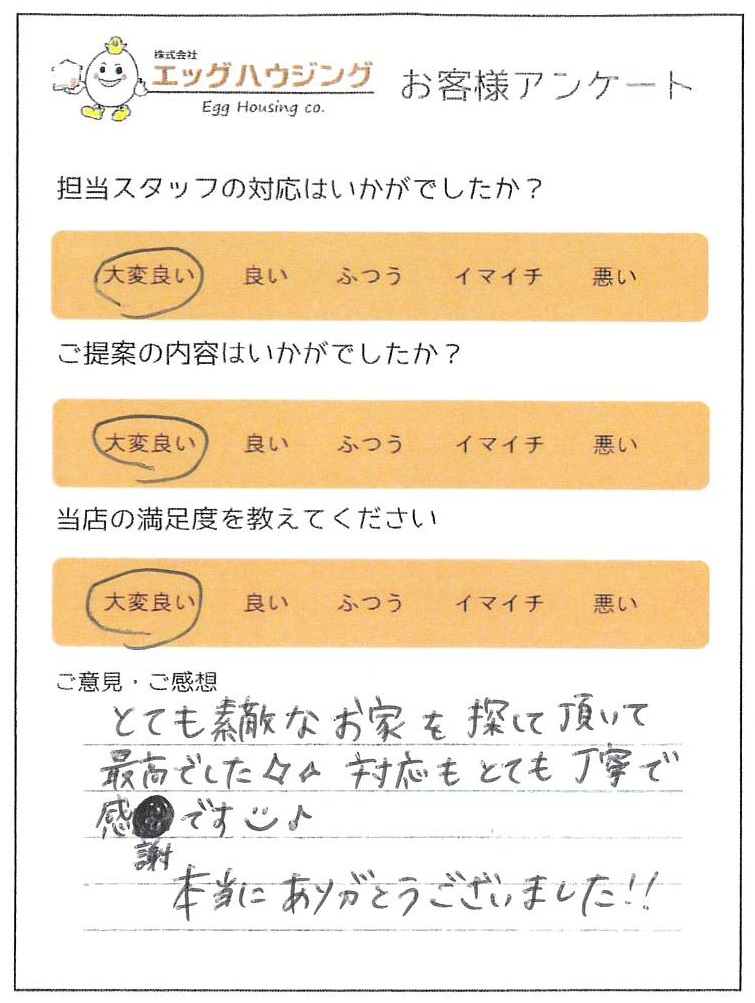 株式会社
エッグハウジング
Egg Housing co.
お客様アンケート
担当スタッフの対応はいかがでしたか?
大変良い 良い ふつう イマイチ 悪い
ご提案の内容はいかがでしたか?
大変良い 良い ふつう イマイチ 悪い
当店の満足度を教えてください
大変良い 良い ふつう イマイチ 悪い
ご意見・ご感想
とても素敵なお家を探して頂いて
最高でした☆☆ 対応もとても丁寧で
感 です♪
謝
本当にありがとうございました!!